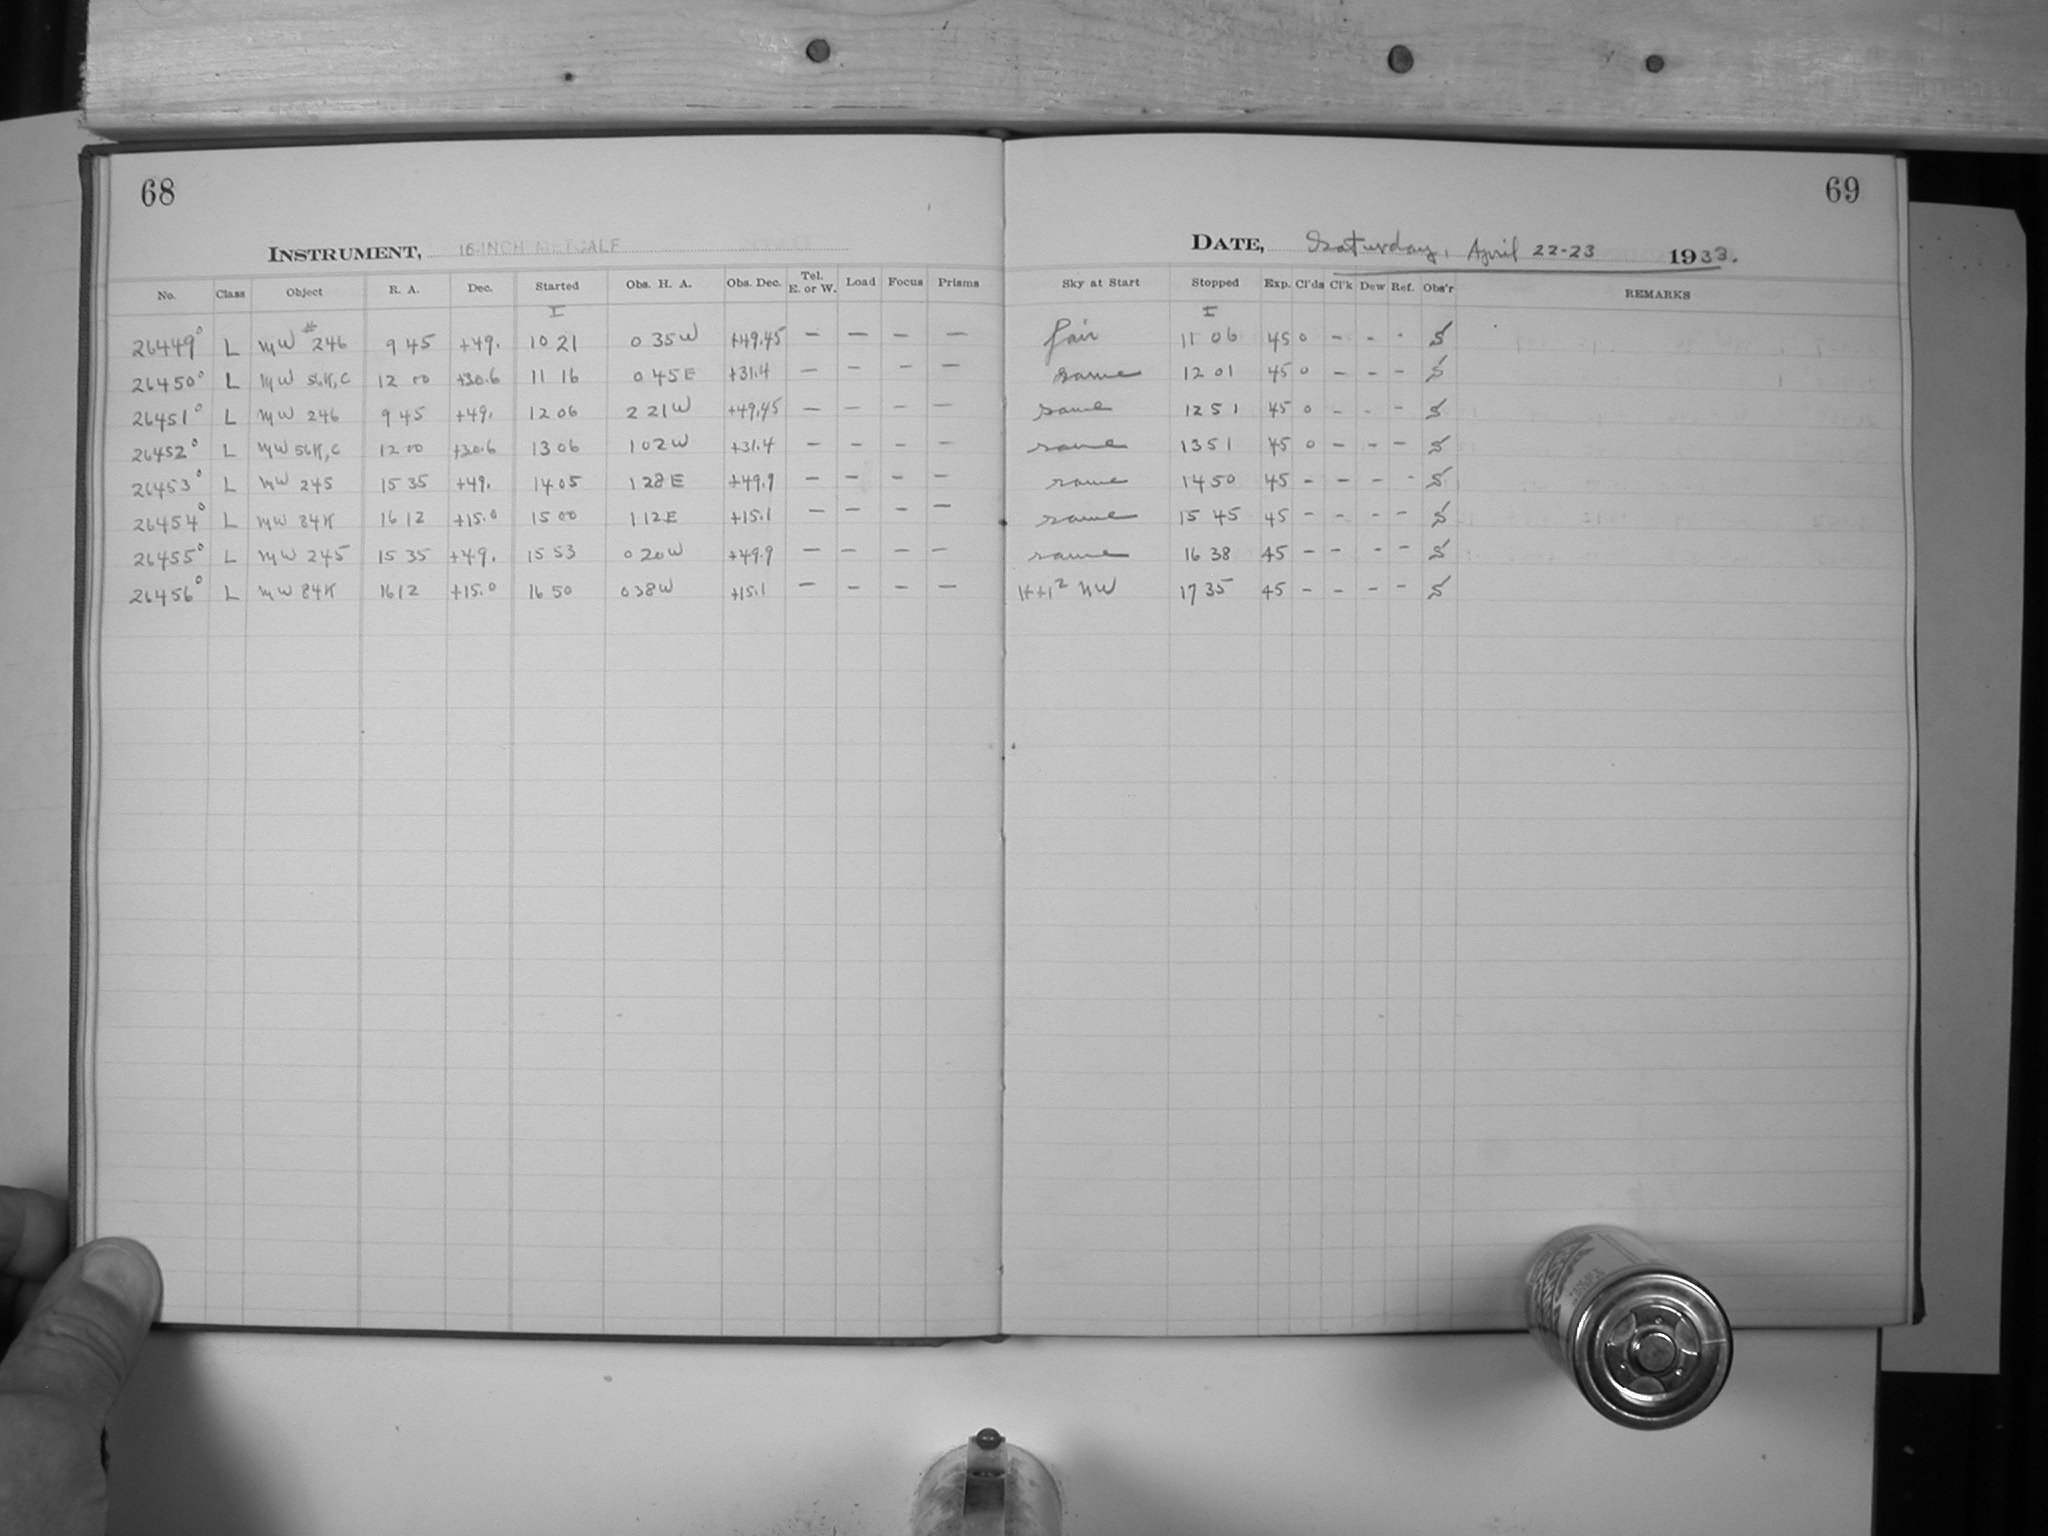 68
INSTRUMENT, 16-INCH METCALF
No. Class Object R. A. Dec. Started Obs. H. A. Obs. Dec. Tel. E. or W. Load Focus Prisms
I
26449⁰ L MW #246 9 45 +49. 10 21 0 35 W +49.45 — — — —
26450⁰ L MW 56K,C 12 00 +30.6 11 16 0 45 E +31.4 — — — —
26451⁰ L MW 246 9 45 +49. 12 06 2 21 W +49.45 — — — —
26452⁰ L MW 56K,C 12 00 +30.6 13 06 1 02 W +31.4 — — — —
26453⁰ L MW 245 15 35 +49. 14 05 1 28 E +49.9 — — — —
26454⁰ L MW 84K 16 12 +15.0 15 00 1 12 E +15.1 — — — —
26455⁰ L MW 245 15 35 +49. 15 53 0 20 W +49.9 — — — —
26456⁰ L MW 84K 16 12 +15.0 16 50 0 38 W +15.1 — — — —
69
DATE, Saturday, April 22-23 1933.
Sky at Start Stopped Exp. Cl'ds Cl'k Dew Ref. Obs'r REMARKS
I
fair 11 06 45 0 - - - S
same 12 01 45 0 - - - S
same 12 51 45 0 - - - S
same 13 51 45 0 - - - S
same 14 50 45 - - - - S
same 15 45 45 - - - - S
same 16 38 45 - - - - S
H+1² NW 17 35 45 - - - - S